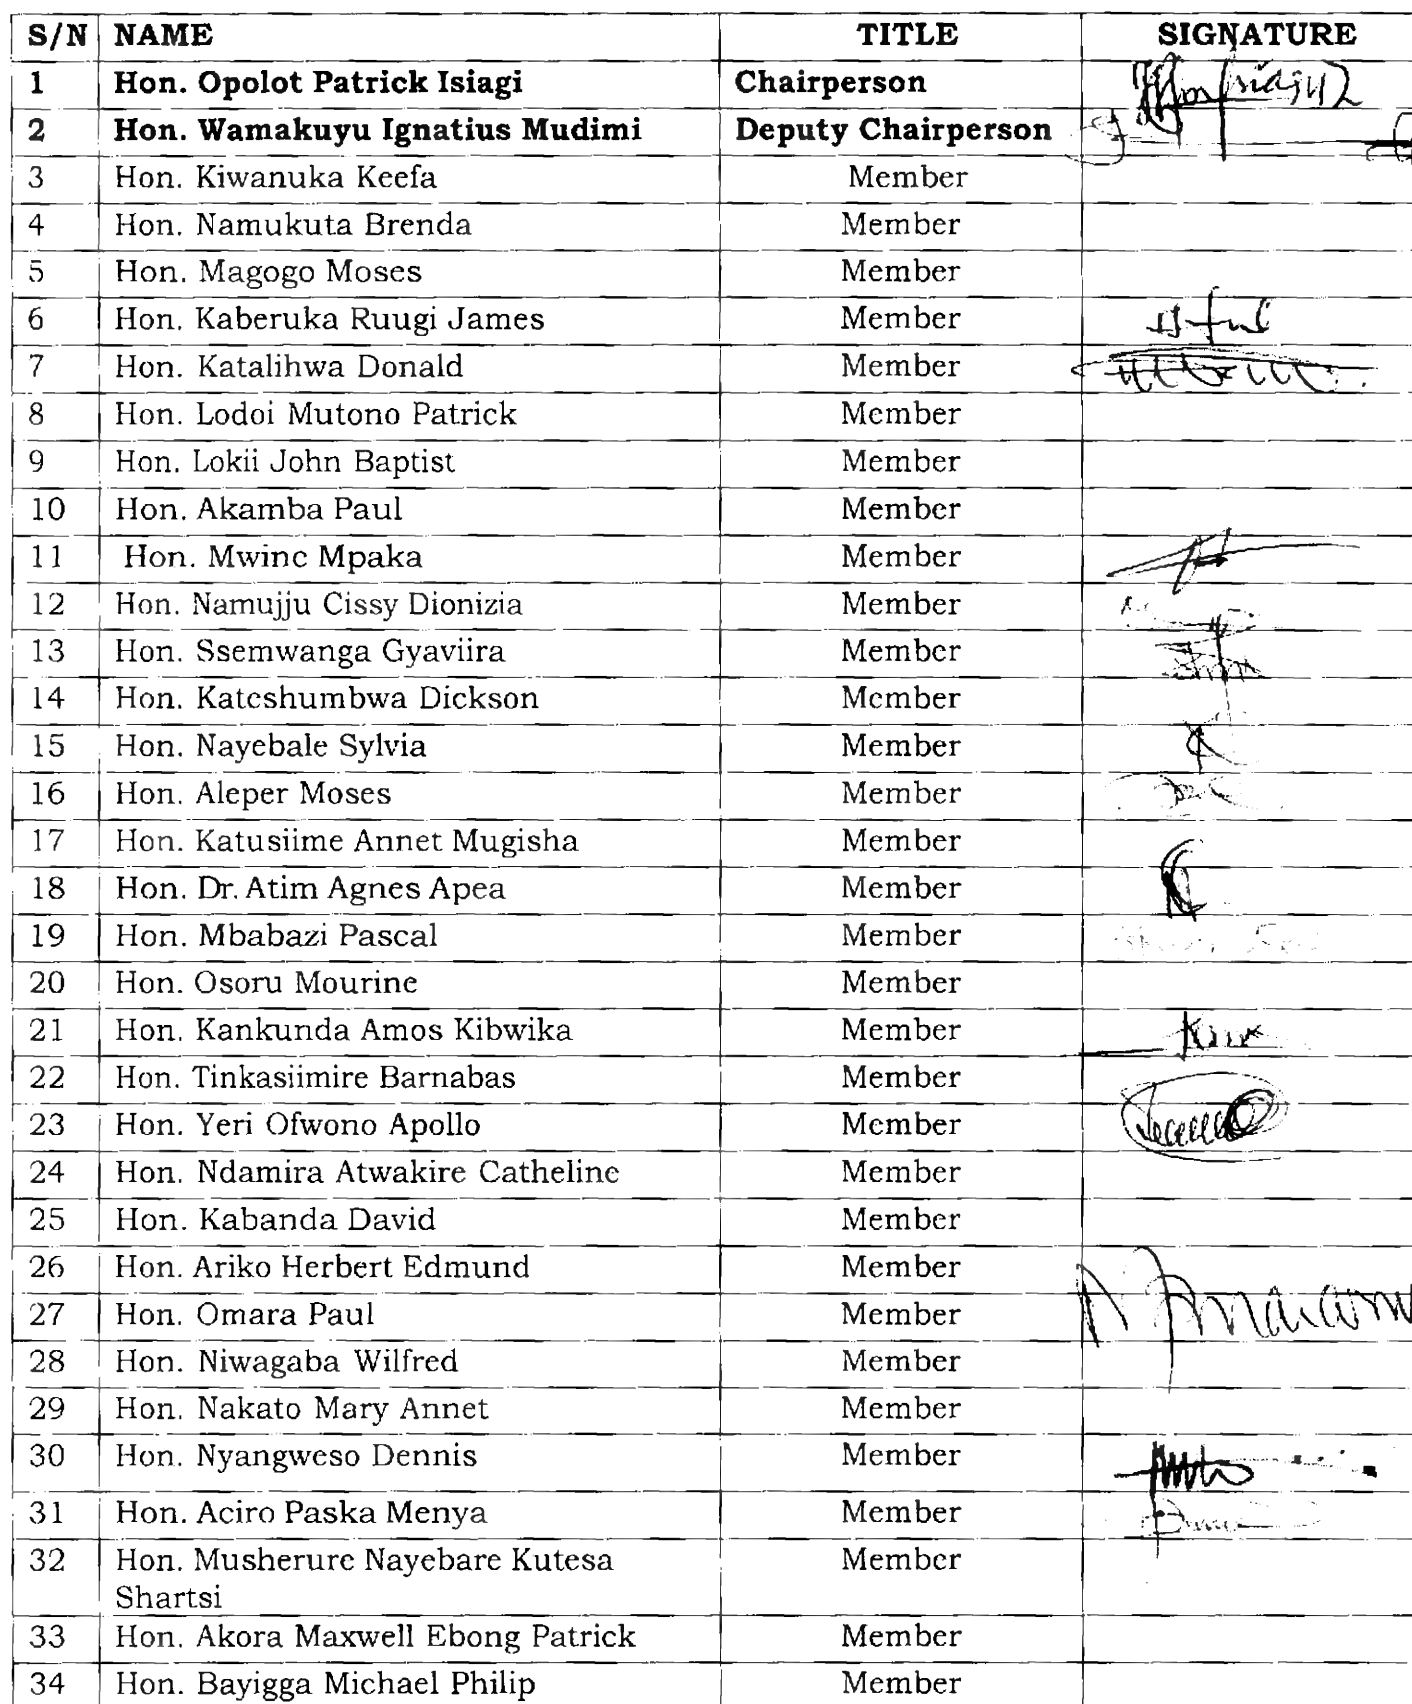 S/N NAME TITLE SIGNATURE
1 Hon. Opolot Patrick Isiagi Chairperson
2 Hon. Wamakuyu Ignatius Mudimi Deputy Chairperson
3 Hon. Kiwanuka Keefa Member
4 Hon. Namukuta Brenda Member
5 Hon. Magogo Moses Member
6 Hon. Kaberuka Ruugi James Member
7 Hon. Katalihwa Donald Member
8 Hon. Lodoi Mutono Patrick Member
9 Hon. Lokii John Baptist Member
10 Hon. Akamba Paul Member
11 Hon. Mwine Mpaka Member
12 Hon. Namujju Cissy Dionizia Member
13 Hon. Ssemwanga Gyaviira Member
14 Hon. Kateshumbwa Dickson Member
15 Hon. Nayebale Sylvia Member
16 Hon. Aleper Moses Member
17 Hon. Katusiime Annet Mugisha Member
18 Hon. Dr. Atim Agnes Apea Member
19 Hon. Mbabazi Pascal Member
20 Hon. Osoru Mourine Member
21 Hon. Kankunda Amos Kibwika Member
22 Hon. Tinkasiimire Barnabas Member
23 Hon. Yeri Ofwono Apollo Member
24 Hon. Ndamira Atwakire Catheline Member
25 Hon. Kabanda David Member
26 Hon. Ariko Herbert Edmund Member
27 Hon. Omara Paul Member
28 Hon. Niwagaba Wilfred Member
29 Hon. Nakato Mary Annet Member
30 Hon. Nyangweso Dennis Member
31 Hon. Aciro Paska Menya Member
32 Hon. Musherure Nayebare Kutesa Member
Shartsi
33 Hon. Akora Maxwell Ebong Patrick Member
34 Hon. Bayigga Michael Philip Member